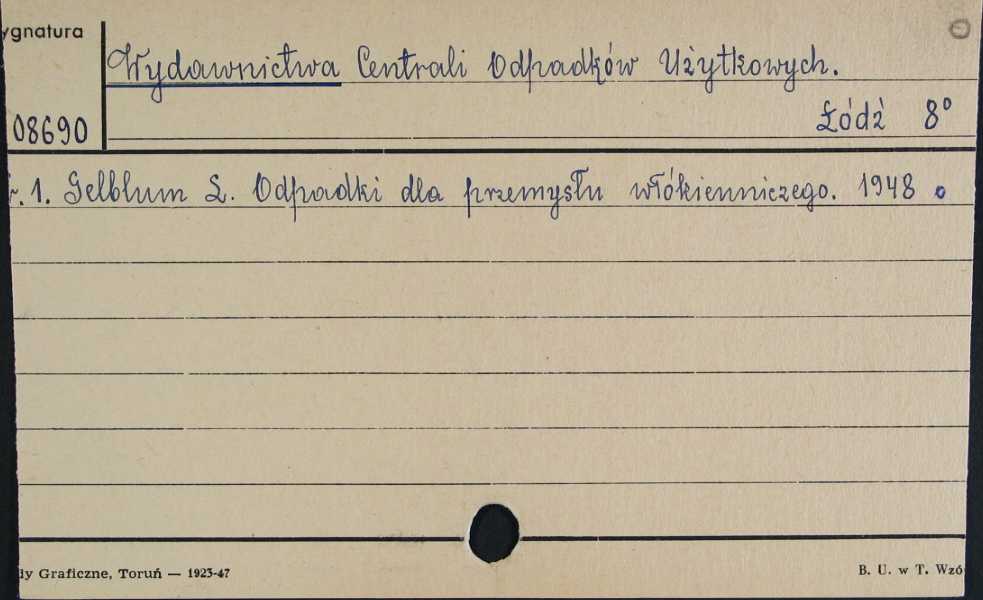 ygnatura
Wydawnictwa Centrali Odpadków Użytkowych.
08690
Łódź 8°
r. 1. Gelblum L. Odpadki dla przemysłu włókienniczego. 1948
dy Graficzne, Toruń — 1923-47
B. U. w T. Wzó